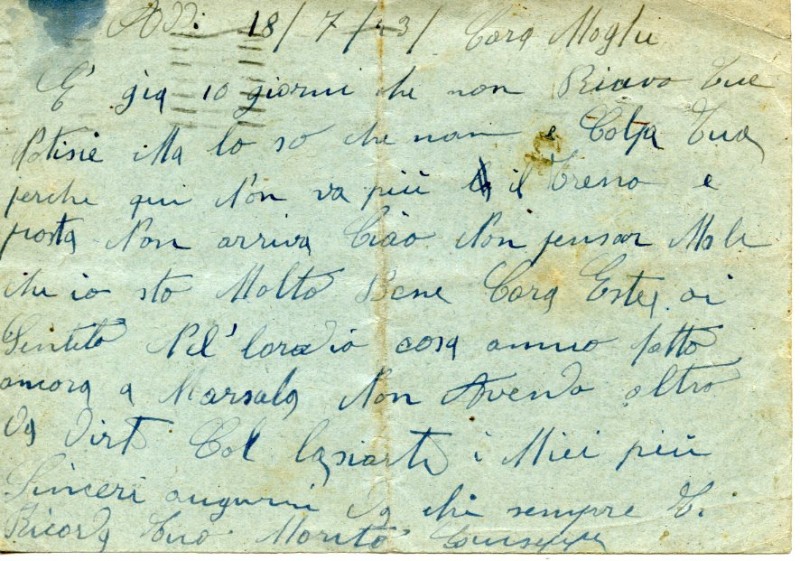 Addi 18/7/43/ Cara Moglie
E' gia 10 giorni che non Ricevo tue
Notisie Ma lo so che non e Colpa Tua
perche qui Non va più il treno e
posta Non arriva Ciao Non pensar Male
che io sto Molto Bene Cara Ester ai
Sentito Nel' loradio cosa anno fatto
ancora a Marsala Non Avendo altro
da dirti Col lasiarti i Miei più
Sinceri auguri da chi sempre ti
Ricorda tuo Marito Giuseppe